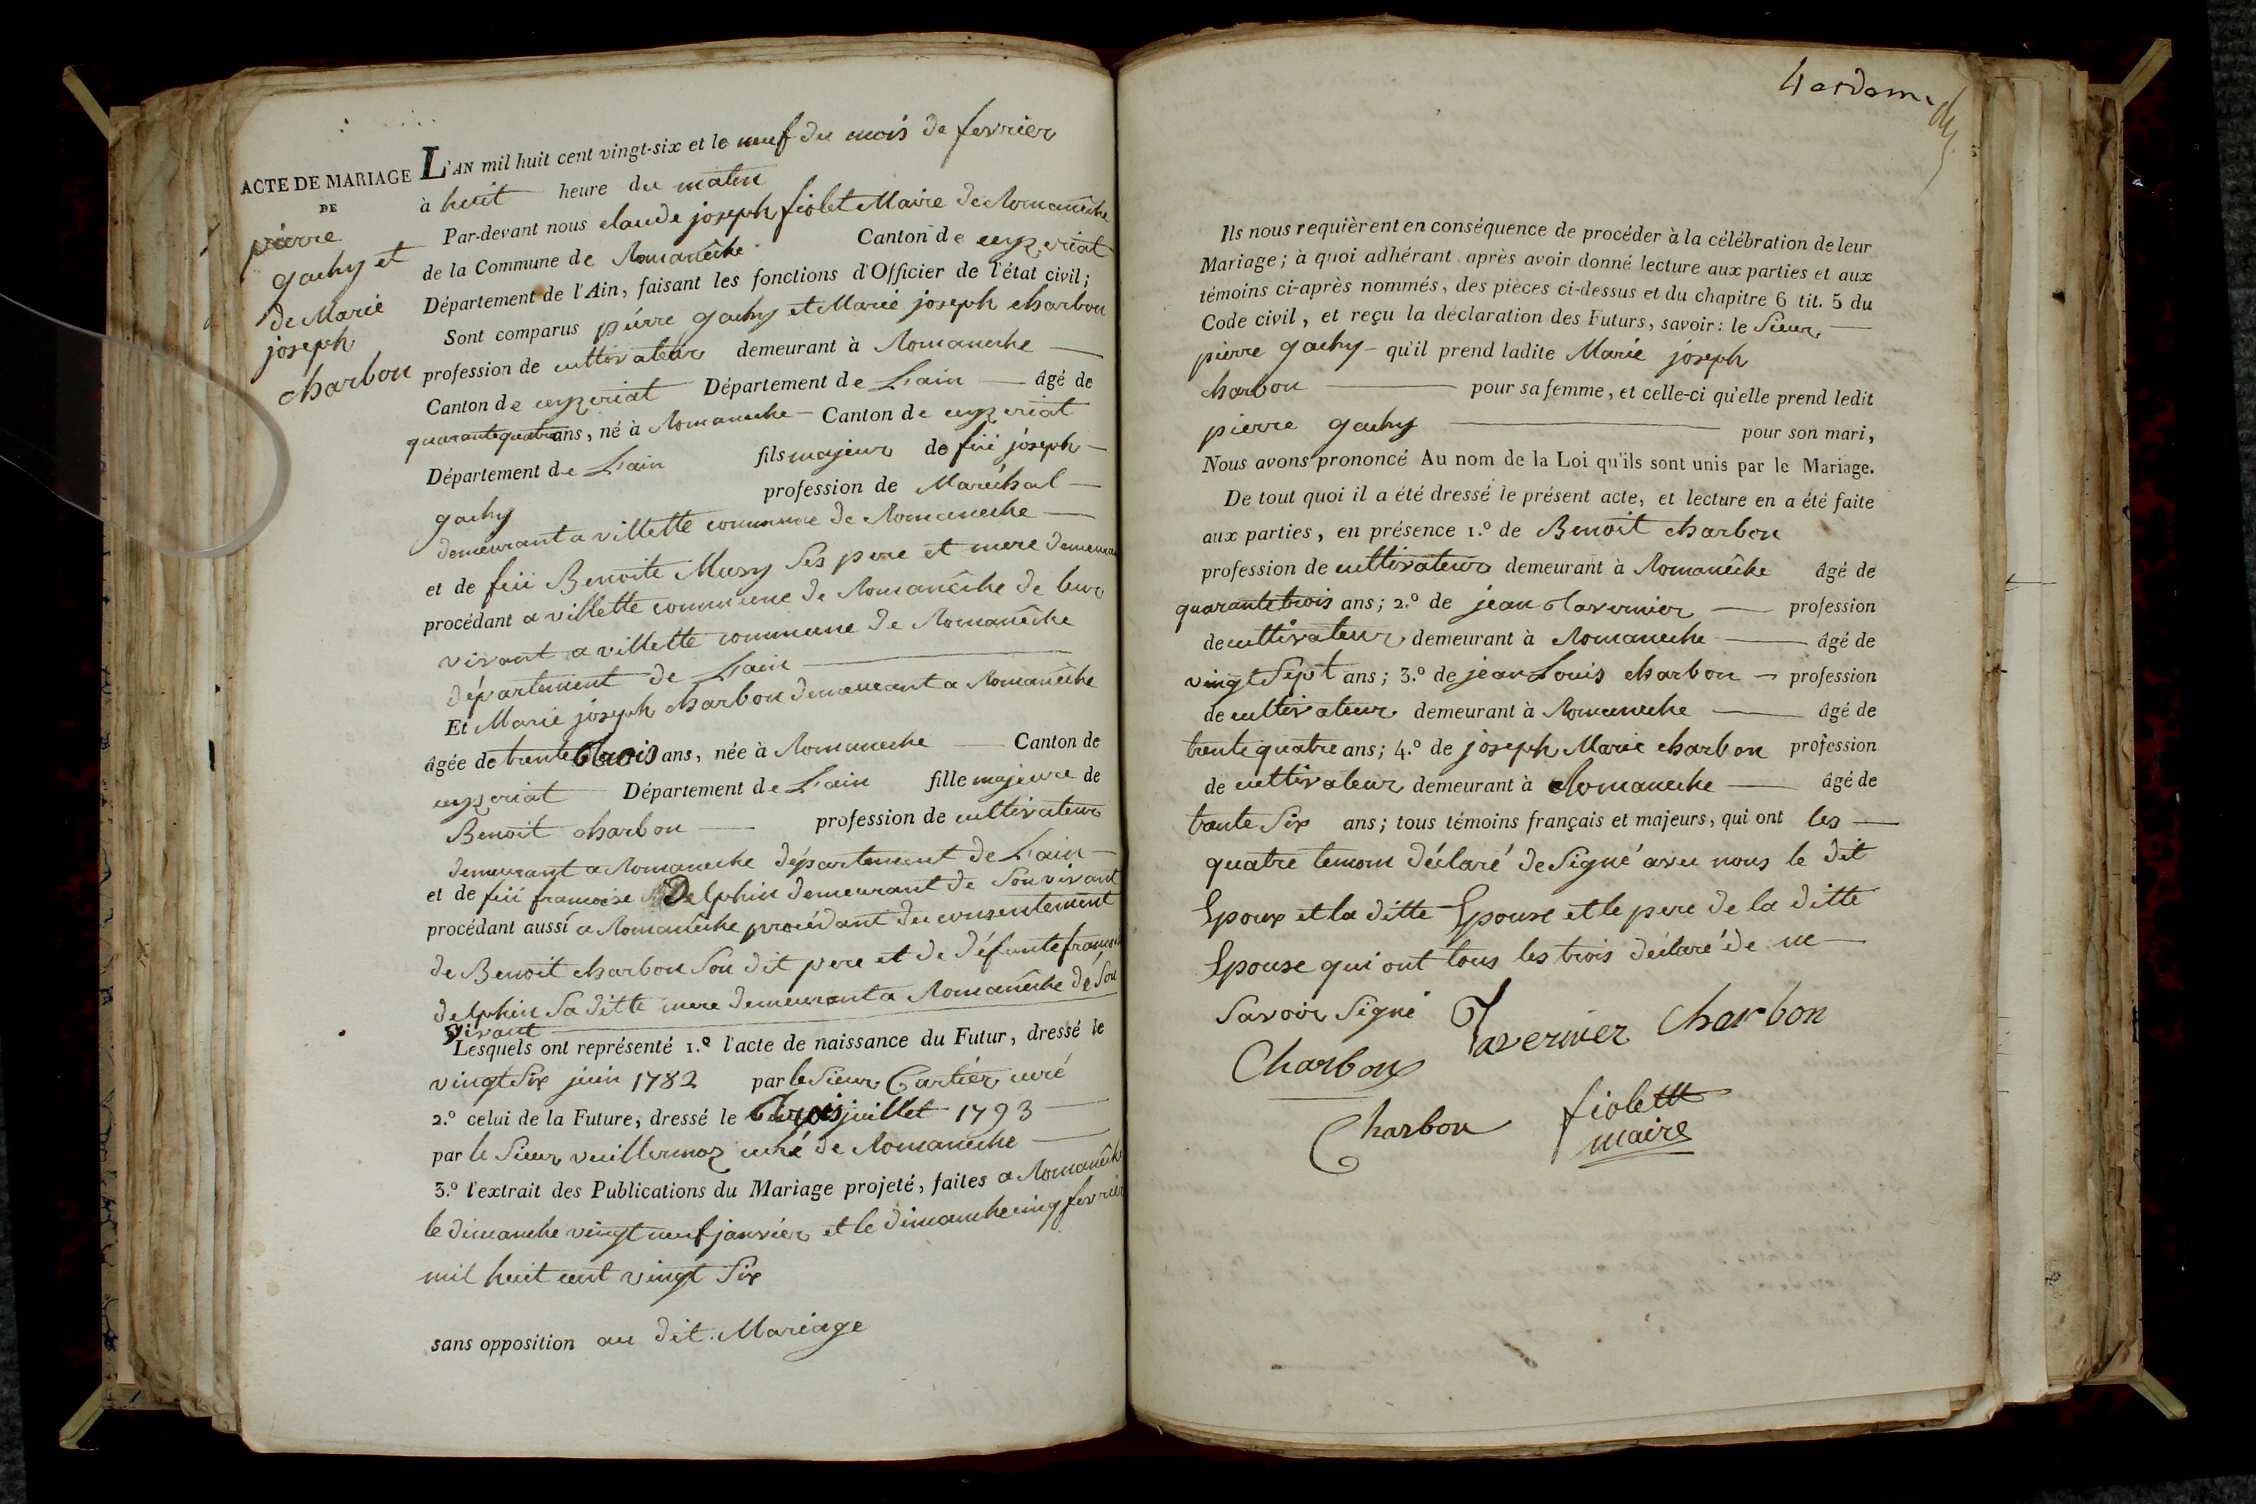 ACTE DE MARIAGE
DE
pierre
gachy et
de Marie
joseph
charbon
L'AN mil huit cent vingt-six et le neuf du mois de fevrier
à huit heure du matin
Par-devant nous claude joseph fiolet Maire de Romanêche
de la Commune de Romanêche Canton de ceyzeriat
Département de l'Ain, faisant les fonctions d'Officier de l'état civil;
Sont comparus pierre gachy et Marie joseph charbon
profession de cultivateur demeurant à Romaneche
Canton de ceyzeriat Département de L'ain âgé de
quarantequatre ans, né à Romaneche Canton de ceyzeriat
Département de L'ain fils majeur de feü joseph
gachy profession de Maréchal
demeurant a villette commune de Romaneche
et de feü Benoite Mury Ses pere et mere demeurant
procédant a villette commune de Romanêche de leur
vivant a villette commune de Romanêche
département de L'ain
Et Marie joseph charbon demeurant a Romanêche
âgée de trente trois ans, née à Romaneche Canton de
ceyzeriat Département de L'ain fille majeure de
Benoit charbon profession de cultivateur
demeurant a Romaneche département de L'ain
et de feü francoise Delphin demeurant de Son vivant
procédant aussi a Romanêche procédant du consentement
de Benoit charbon Son dit pere et de défunte
delphin Sa ditte mere demeurant a Romanêche de Son
vivant
Lesquels ont représenté 1.º l'acte de naissance du Futur, dressé le
vingt Six juin 1782 par le Sieur Cartier curé
2.º celui de la Future, dressé le trois juillet 1793
par le Sieur vuillermoz curé de Romaneche
3.º l'extrait des Publications du Mariage projeté, faites a Romanêche
le dimanche vingt neuf janvier et le dimanche cinq fevrier
mil huit cent vingt Six
sans opposition au dit Mariage
Ils nous requièrent en conséquence de procéder à la célébration de leur
Mariage; à quoi adhérant après avoir donné lecture aux parties et aux
témoins ci-après nommés, des pièces ci-dessus et du chapitre 6 tit. 5 du
Code civil, et reçu la déclaration des Futurs, savoir: le Sieur
pierre gachy qu'il prend ladite Marie joseph
charbon pour sa femme, et celle-ci qu'elle prend ledit
pierre gachy pour son mari,
Nous avons prononcé Au nom de la Loi qu'ils sont unis par le Mariage.
De tout quoi il a été dressé le présent acte, et lecture en a été faite
aux parties, en présence 1.º de Benoit charbon
profession de cultivateur demeurant à Romanêche âgé de
quarante trois ans; 2.º de jean tavernier profession
de cultivateur demeurant à Romaneche âgé de
vingt Sept ans; 3.º de jean Louis charbon profession
de cultivateur demeurant à Romaneche âgé de
trente quatre ans; 4.º de joseph Marie charbon profession
de cultivateur demeurant à Romaneche âgé de
trante Six ans; tous témoins français et majeurs, qui ont les
quatre temoin déclaré de Signé avec nous le dit
Epoux et la ditte Epouse et le pere de la ditte
Epouse qui ont tous les trois déclaré de ne
Savoir Signé Tavernier Charbon
Charbon
Charbon fiolettt
maire